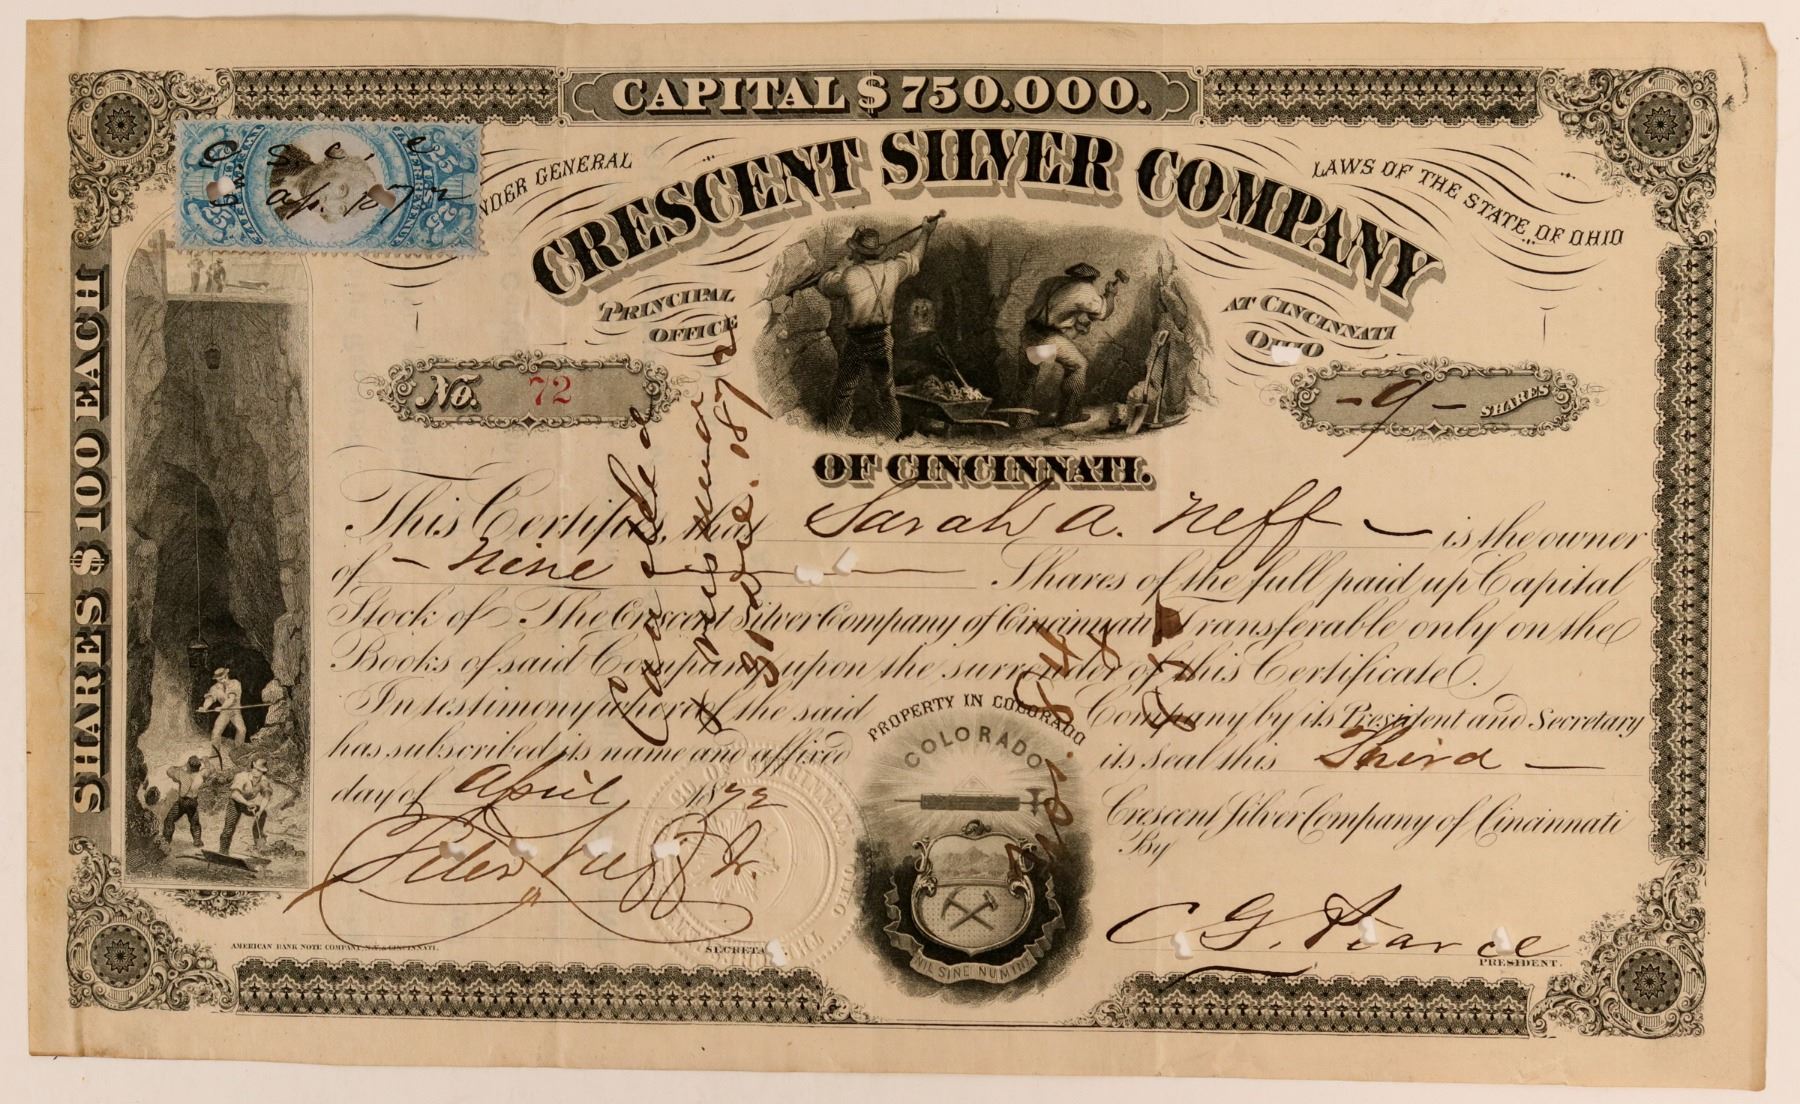 CAPITAL $ 750.000.
UNDER GENERAL
LAWS OF THE STATE OF OHIO
CRESCENT SILVER COMPANY
PRINCIPAL OFFICE
AT CINCINNATI OHIO
No. 72
- 9 - SHARES
OF CINCINNATI.
SHARES $ 100 EACH
This Certifies, that Sarah A. Neff is the owner
of - Nine Shares of the full paid up Capital
Stock of The Crescent Silver Company of Cincinnati Transferable only on the
Books of said Company upon the surrender of this Certificate.
In testimony whereof the said Company by its President and Secretary
has subscribed its name and affixed its seal this Third
day of April 1872
Crescent Silver Company of Cincinnati
By
Peter Neff Jr.
SECRETA
C G. Pearce
PRESIDENT.
PROPERTY IN COLORADO
COLORADO
NIL SINE NUMINE
AMERICAN BANK NOTE COMPANY, N.Y. & CINCINNATI.
C. S. C. C
Ap. 1872
25
25
Cancelled
31 1872